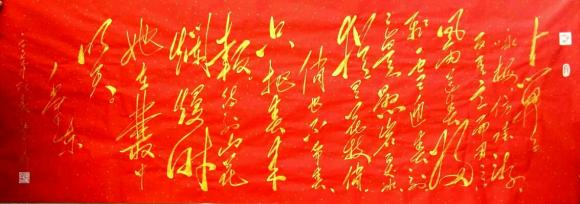 卜算子
咏梅
反其意而用之
风雨送春归
飞雪迎春到
已是悬崖百丈冰
犹有花枝俏
俏也不争春
只把春来
報待到山花
爛熳時
她在叢中
笑。